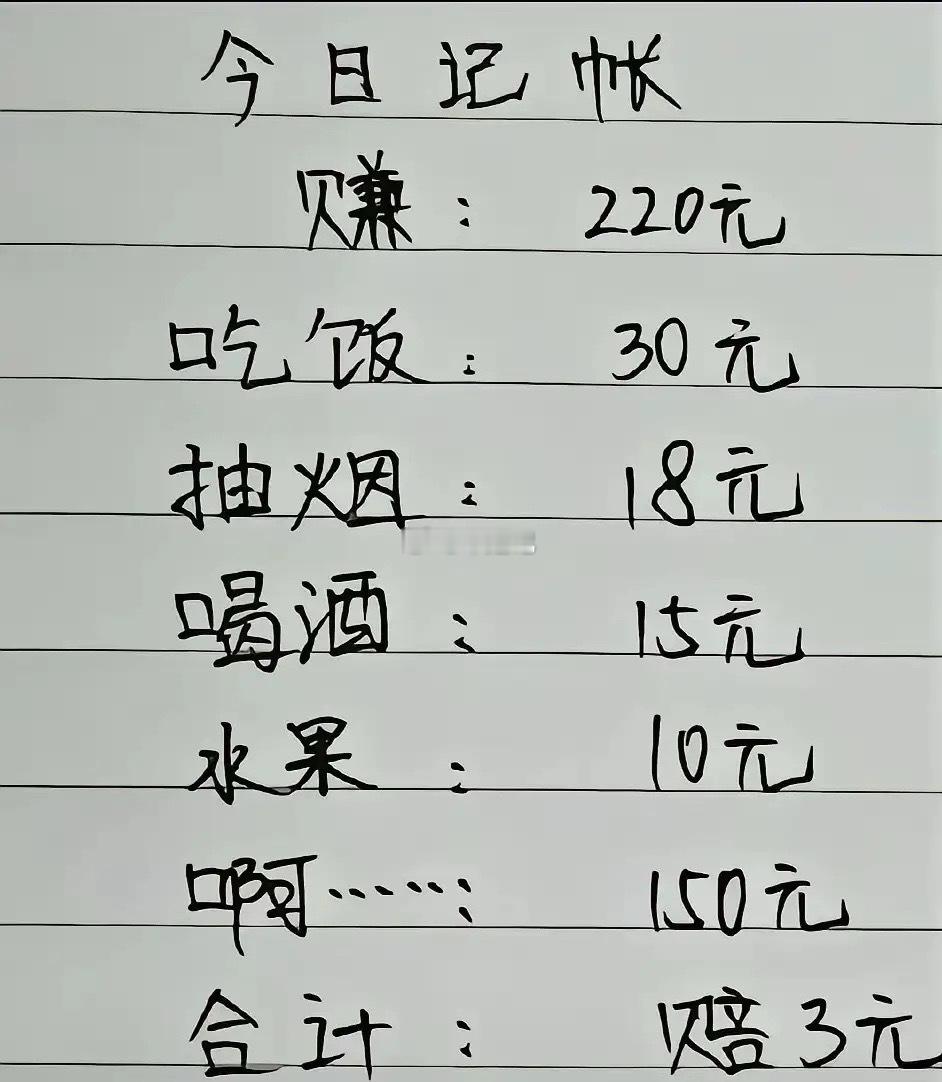 今日记帐
赚：220元
吃饭：30元
抽烟：18元
喝酒：15元
水果：10元
啊……：150元
合计：赔3元